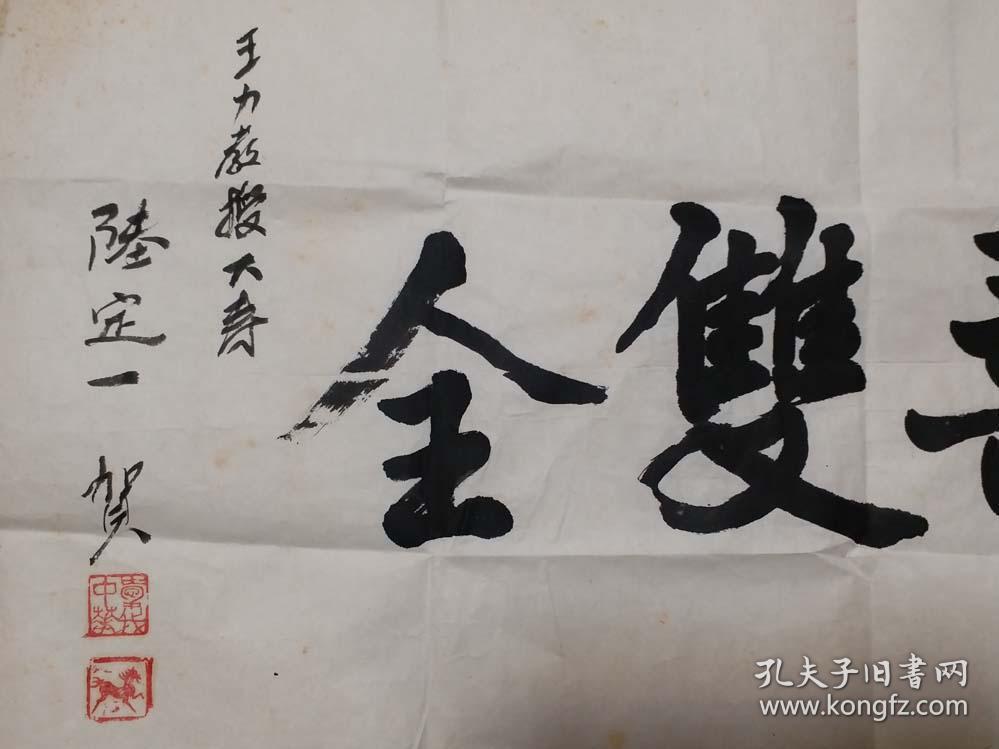 雙全
王力教授大寿
陸定一 賀
愛我中華
孔夫子旧書网
www.kongfz.com